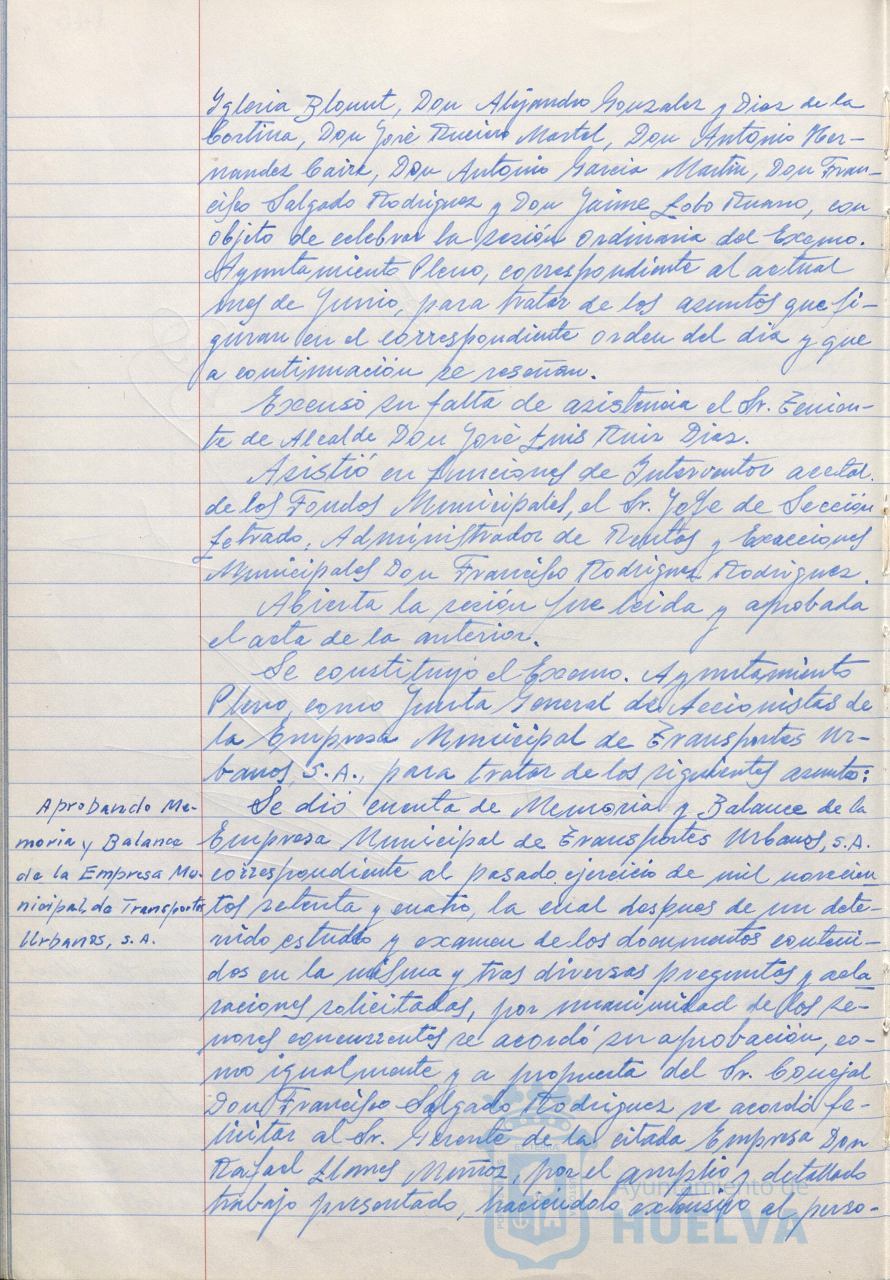 Yglesia Blount, Don Alejandro Gonzalez y Diaz de la
Cortina, Don José Martel, Don Antonio Her-
nandez Caire, Don Antonio Garcia Martin, Don Fran-
cisco Salgado Rodriguez y Don Jaime Lobo Ruano, con
objeto de celebrar la sesión ordinaria del Excmo.
Ayuntamiento Pleno, correspondiente al actual
mes de Junio, para tratar de los asuntos que fi-
guran en el correspondiente orden del dia y que
a continuación se reseñan.
Excusó su falta de asistencia el Sr. Tenien-
te de Alcalde Don José Luis Ruiz Diaz.
Asistió en funciones de Interventor acctal.
de los Fondos Municipales, el Sr. Jefe de Sección
Letrado, Administrador de Rentas y Exacciones
Municipales Don Francisco Rodriguez Rodriguez.
Abierta la sesión fue leida y aprobada
el acta de la anterior.
Se constituyó el Excmo. Ayuntamiento
Pleno como Junta General de Accionistas de
la Empresa Municipal de Transportes Ur-
banos, S.A., para tratar de los siguientes asunto:
Aprobando Me-
moria y Balance
de la Empresa Mu-
nicipal de Transportes
Urbanos, S.A.
Se dió cuenta de Memoria y Balance de la
Empresa Municipal de Transportes Urbanos, S.A.
correspondiente al pasado ejercicio de mil novecien
tos setenta y cuatro, la cual despues de un dete-
nido estudio y examen de los documentos conteni-
dos en la misma y tras diversas preguntas y acla
raciones solicitadas, por unanimidad de los se-
nores concurrentes se acordó su aprobación, co-
mo igualmente y a propuesta del Sr. Concejal
Don Francisco Salgado Rodriguez se acordó fe-
licitar al Sr. Gerente de la citada Empresa Don
Rafael Llanes Muñoz, por el amplio y detallado
trabajo presentado, haciendolo extensivo al perso-
Ayuntamiento de
HUELVA